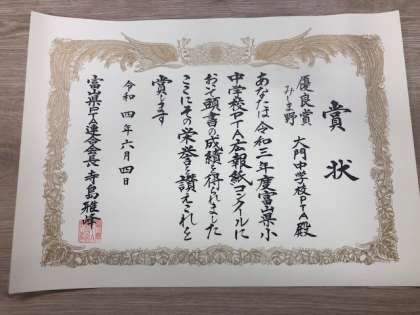 賞状
優良賞
みしま野
大門中学校PTA殿
あなたは令和三年度富山県小
中学校PTA広報紙コンクールに
おいて頭書の成績を得られました
ここにその栄誉を讃えこれを
賞します
令和四年六月四日
富山県PTA連合会長 寺島雅峰